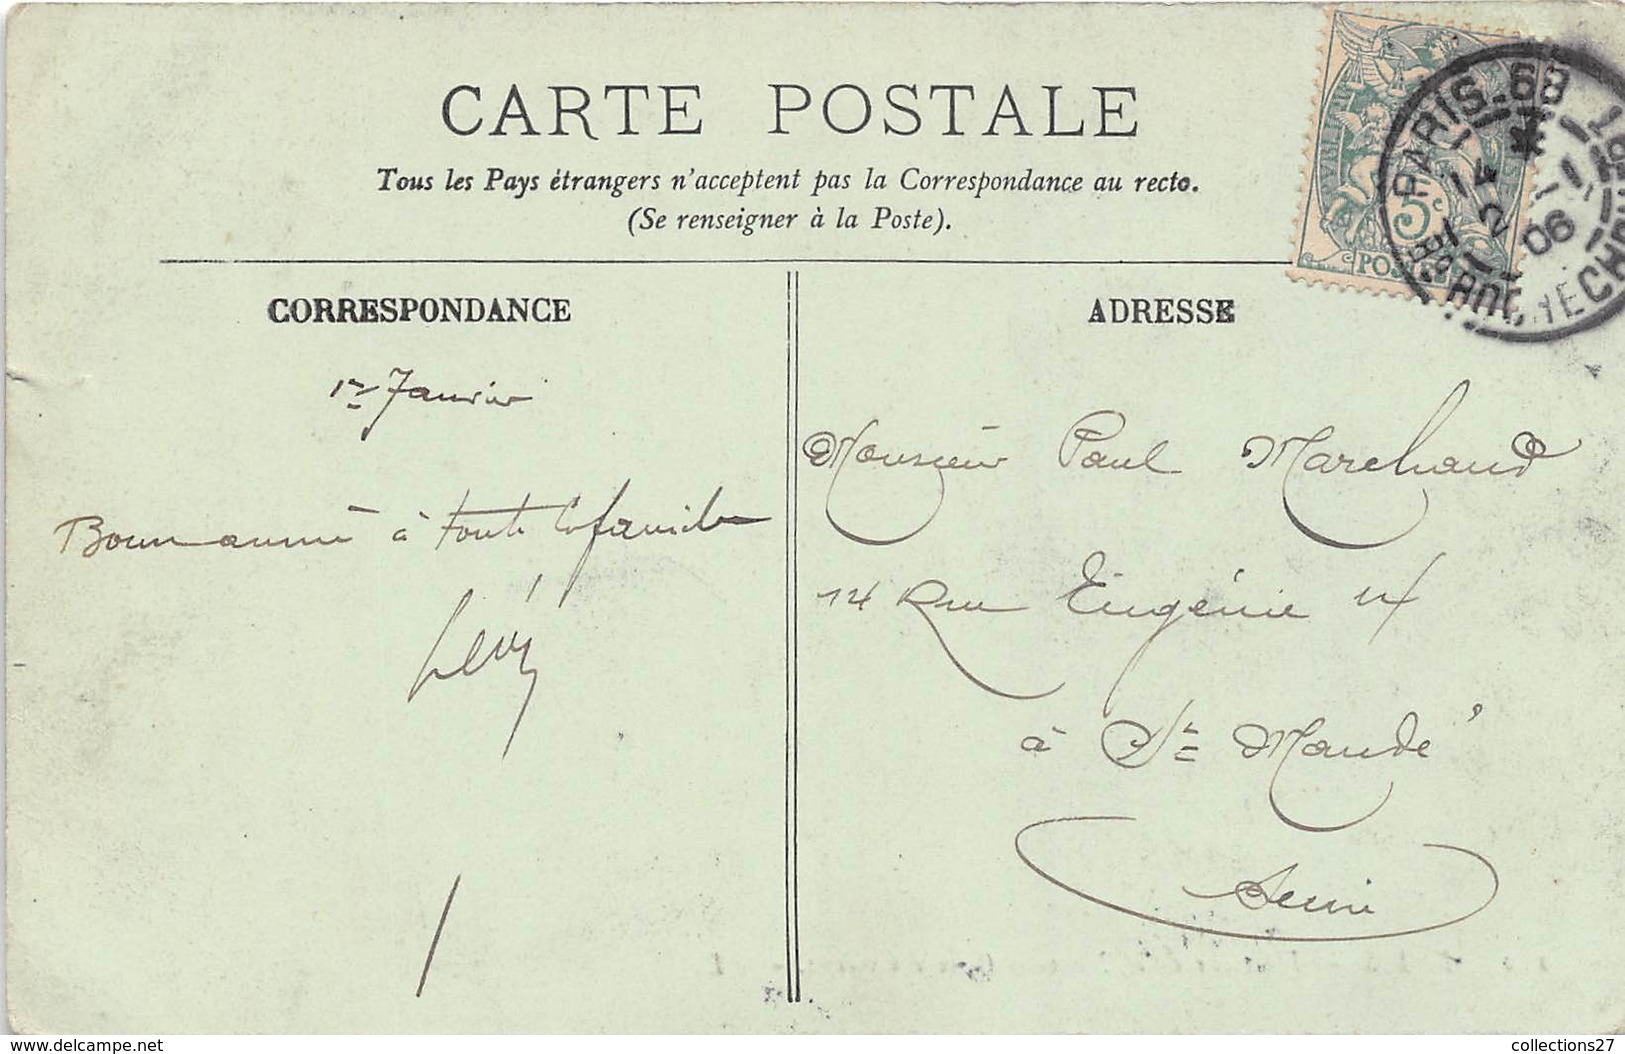 CARTE POSTALE
Tous les Pays étrangers n'acceptent pas la Correspondance au recto.
(Se renseigner à la Poste).
CORRESPONDANCE
ADRESSE
5c
POS
PARIS-68
14
2 1
06
1er Janvier
Bonne année à toute la famille
Lévy
Monsieur Paul Marchand
14 Rue Eugénie
à St Mandé
Seine
www.delcampe.net
collections27